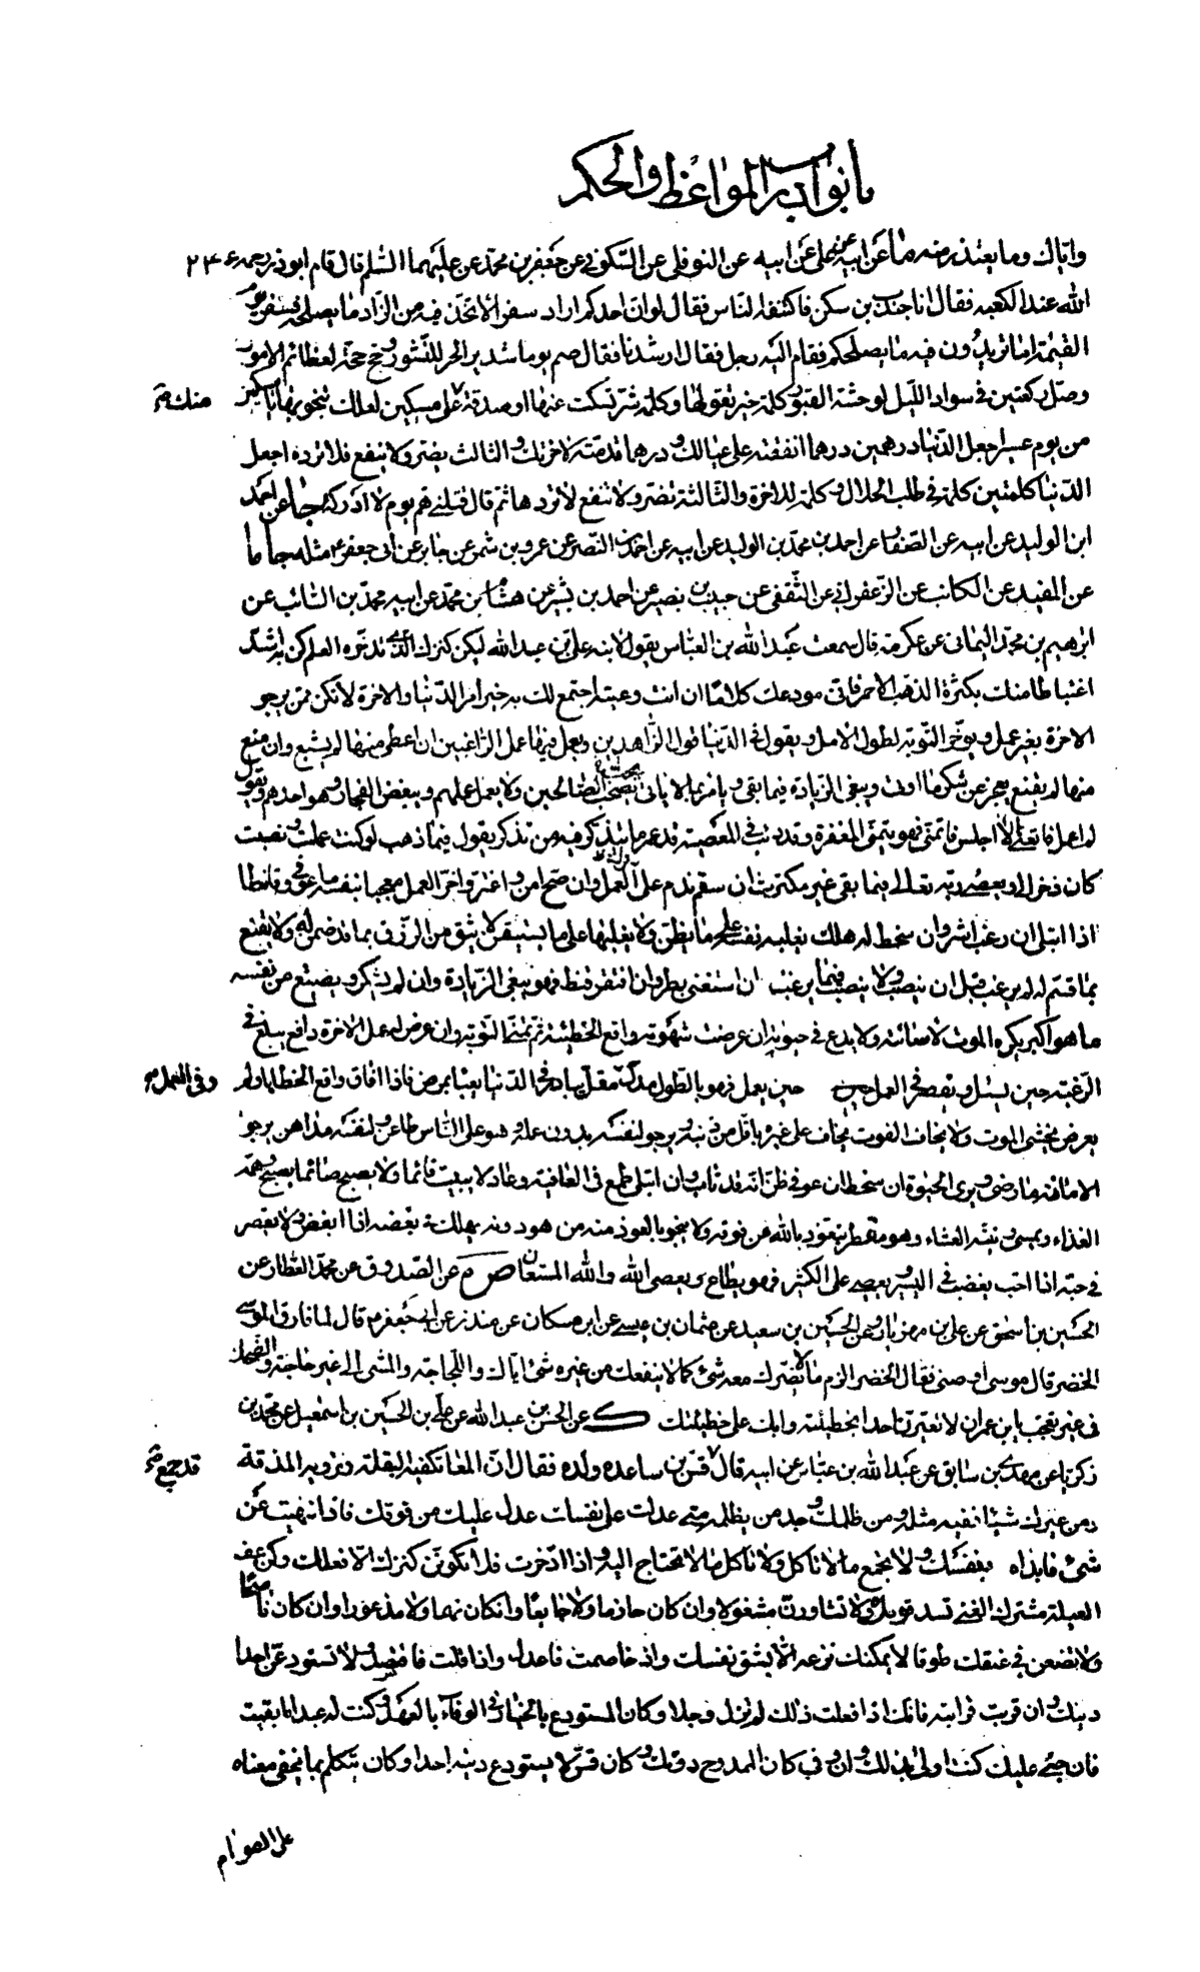 باب نوادر المواعظ والحكم
واياك وما يعتذر منه ما عن ابيه عن علي عن ابيه عن النوفلي عن السكوني عن جعفر بن محمد عن عليهما السلم قال قام ابو ذر رحمه
الله عند الكعبه فقال انا جندب بن سكن فاكتنفه الناس فقال لو ان احدكم اراد سفرا لاتخذ فيه من الزاد ما يصلحه فسفر يوم
القيمة اما تريدون فيه ما يصلحكم فقام اليه رجل فقال ارشدنا فقال صم يوما شديد الحر للنشور وحج حجة لعظائم الامور
وصل ركعتين في سواد الليل لوحشة القبور كلمة خير تقولها وكلمة شر تسكت عنها او صدقة على مسكين لعلك تنجو بها يا مسكين
منك
من يوم عسير اجعل الدنيا درهمين درهما انفقته على عيالك ودرهما قدمته لاخرتك والثالث يضر ولا ينفع فلا ترده اجعل
الدنيا كلمتين كلمة في طلب الحلال وكلمة للاخرة والثالثة تضر ولا تنفع لا تردها ثم قال قتلني هم يوم لا ادركه جا عن احمد
ابن الوليد عن ابيه عن الصفار عن احمد بن محمد بن الوليد عن ابيه عن احمد بن النصر عن عمرو بن شمر عن جابر عن ابى جعفر ع مثله جا ما
عن المفيد عن الكاتب عن الزعفراني عن الثقفي عن حبيب بن نصير عن احمد بن بشير عن هشام بن محمد عن ابيه محمد بن السائب عن
ابرهيم بن محمد اليمانى عن عكرمة قال سمعت عبد الله بن العباس يقول لابنه علي بن عبد الله ليكن كنزك الذي تدخره العلم كن به اشد
اغتباطا منك بكثرة الذهب الاحمر فاني مودعك كلاما ان انت وعيته اجتمع لك به خير امر الدنيا والاخرة لا تكن ممن يرجو
الاخرة بغير عمل ويؤخر التوبة لطول الامل ويقول في الدنيا قول الزاهدين ويعمل فيها عمل الراغبين ان اعطى منها لم يشبع وان منع
منها لم يقنع يعجز عن شكر ما اوتى ويبغى الزيادة فيما بقى ويامر بما لا ياتى يحب الصالحين ولا يعمل عملهم ويبغض الفجار وهو احدهم ويقول
لم اعمل فاتعنى الا اجلس فاتمنى فهو يتمنى المغفرة وقد دئب في المعصية قد عمر ما يتذكر فيه من تذكر يقول فيما ذهب لو كنت عملت ونصبت
كان ذخرا لي ويعصى ربه تعالى فيما بقى غير مكترث ان سقم ندم على العمل وان صح امن واغتر واخر العمل معجبا بنفسه ما عوفي وقانطا
اذا ابتلى ان رغب اشر وان سخط له هلك تغلبه نفسه على ما يظن ولا يغلبها على ما يستيقن لا يثق من الرزق بما قد ضمن له ولا يقنع
بما قسم له لم يرغب قبل ان ينصب ولا ينصب فيما يرغب ان استغنى بطر وان افتقر قنط فهو يبغى الزيادة وان لم يشكر ويضيع من نفسه
ما هو اكبر يكره الموت لاسائته ولا يدع في حيوته ان عرضت شهوته واقع الخطيئة ثم تمنى التوبة وان عرض له عمل الاخرة دافع يبلغ في
الرغبة حين يسئل ويقصر في العمل حين يعمل فهو بالطول مدل مقل يبادر في الدنيا يعيا بمرض فاذا افاق واقع الخطايا ولم
وفي العمل
يعرض يخشى الموت ولا يخاف الفوت يخاف على غيره باقل من ذنبه ويرجو لنفسه بدون عمله وهو على الناس طاعن ولنفسه مداهن يرجو
الامانة ما رضى ويرى الخيانة ان سخط ان عوفي ظن انه قد تاب وان ابتلى طمع في العافية وعاد لا يبيت قائما ولا يصبح صائما يصبح وهمه
الغذاء ويمسى ونيته العشاء وهو مفطر يتعوذ بالله من فوقه ولا ينجو بالعوذ منه من هو دونه يهلك في بغضه اذا ابغض ولا يقصر
في حبه اذا احب يغضب في اليسير ويعصى على الكثير فهو يطاع ويعصى الله والله المستعان ص م عن الصدوق عن محمد العطار عن
الحسين بن اسحق عن علي بن مهزيار عن الحسين بن سعيد عن عثمان بن عيسى عن ابن مسكان عن منذر عن ابي جعفر ع قال لما فارق موسى
الخضر قال موسى اوصنى فقال الخضر الزم ما لا يضرك معه شئ كما لا ينفعك من غيره شئ اياك واللجاجة والمشى الى غير حاجة والضحك
في غير تعجب يا بن عمران لا تعيرن احدا بخطيئته وابك على خطيئتك ك عن الحسن بن عبد الله عن علي بن الحسين بن اسمعيل عن محمد بن
زكريا عن مهدي بن سابق عن عبد الله بن عباس عن ابيه قال قس بن ساعدة ولده فقال ان المعا تكفيه البقلة وترويه المذقة
قد جمع
ومن عيرك شيئا ففيه مثله ومن ظلمك وجد من يظلمه متى عدلت على نفسك عدل عليك من فوقك فاذا نهيت عن
شئ فابدأ بنفسك ولا تجمع ما لا تاكل ولا تاكل ما لا تحتاج اليه واذا ادخرت فلا يكونن كنزك الا فعلك وكن عف
العيلة مشترك الغنى تسد قومك ولا تشاورن مشغولا وان كان حازما ولا جائعا وان كان فهما ولا مذعورا وان كان ناصحا
ولا تضعن في عنقك طوقا لا يمكنك نزعه الا بشق نفسك واذا خاصمت فاعدل واذا قلت فاقصد ولا تستودعن احدا
دينك وان قربت قرابته فانك اذا فعلت ذلك لم تزل وجلا وكان المستودع بالخيار في الوفاء بالعهد وكنت له عبدا ما بقيت
فان جنى عليك كنت اولى بذلك وان وفى كان الممدوح دونك وكان قس لا يستودع دينه احدا وكان يتكلم بما يخفى معناه
على العوام